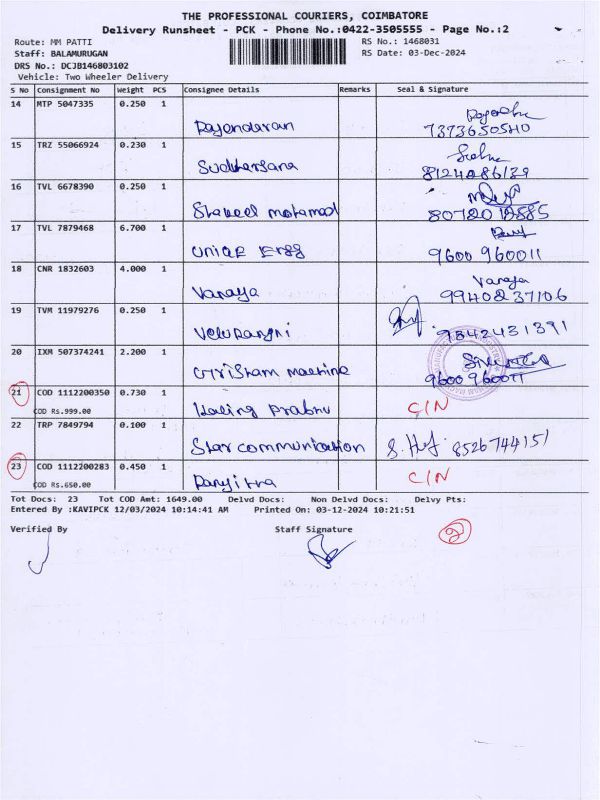 THE PROFESSIONAL COURIERS, COIMBATORE
Delivery Runsheet - PCK - Phone No.:0422-3505555 - Page No.:2
Route: MM PATTI RS No.: 1468031
Staff: BALAMURUGAN RS Date: 03-Dec-2024
DRS No.: DCJB146803102
Vehicle: Two Wheeler Delivery
S No Consignment No Weight PCS Consignee Details Remarks Seal & Signature
14 MTP 5047335 0.250 1
Rajendaran 7373650540
15 TRZ 55066924 0.230 1
Sudhersana 8124286139
16 TVL 6678390 0.250 1
Shakeel mohamad 8072012885
17 TVL 7879468 6.700 1
unique Engg 9600 960011
18 CNR 1832603 4.000 1 Vanaja
Vanaja 9940837106
19 TVM 11979276 0.250 1
9842431391
20 IXM 507374241 2.200 1
machine 9600960011
21 COD 1112200350 0.730 1 C/N
COD Rs.999.00 prabhu
22 TRP 7849794 0.100 1
Star communication 8526744151
23 COD 1112200283 0.450 1 C/N
COD Rs.650.00 Ranjitha
Tot Docs: 23 Tot COD Amt: 1649.00 Delvd Docs: Non Delvd Docs: Delvy Pts:
Entered By :KAVIPCK 12/03/2024 10:14:41 AM Printed On: 03-12-2024 10:21:51
Verified By Staff Signature
2